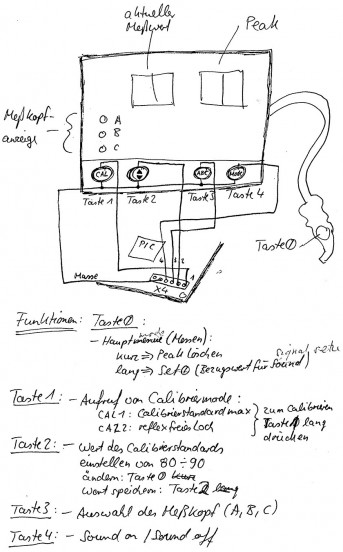 aktueller
Meßwert
Peak
Meßkopf-
anzeige
A
B
C
CAL
ABC
Mode
Taste 1
Taste 2
Taste 3
Taste 4
Taste 0
PIC
4 3 2 1
Masse
X4
Funktionen: Taste 0:
- Hauptmenue (Messen):
mode
kurz => Peak löschen
lang => Set 0 (Bezugswert für Sound)
signal setzen
Taste 1: - Aufruf von Calibriermode:
CAL1: Calibrierstandard max
CAL2: reflexfreies Loch
zum Calibrieren
Taste 1 lang
drücken
Taste 2: - Wert des Calibrierstandards
einstellen von 80 ÷ 90
ändern: Taste 0 kurz
Wert speichern: Taste 2 lang
Taste 3: - Auswahl des Meßkopf (A, B, C)
Taste 4: - Sound on / Sound off